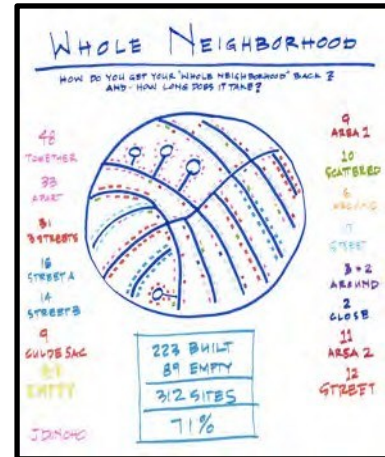 WHOLE NEIGHBORHOOD
HOW DO YOU GET YOUR "WHOLE NEIGHBORHOOD" BACK?
AND - HOW LONG DOES IT TAKE?
48
TOGETHER
33
APART
31
3 STREETS
16
STREET A
14
STREET B
9
CULDESAC
EMPTY
9
AREA 1
10
SCATTERED
6
17
STREET
3+2
AROUND
2
CLOSE
11
AREA 2
12
STREET
223 BUILT
89 EMPTY
312 SITES
71%